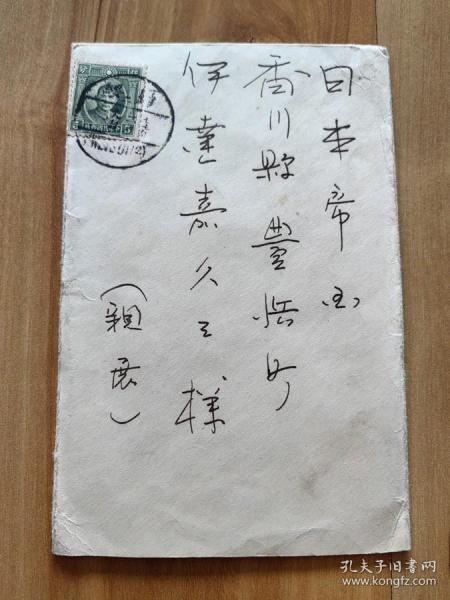 日本帝国
香川縣豊浜町
伊達嘉久三様
(親展)
5
5
孔夫子旧书网
www.kongfz.com